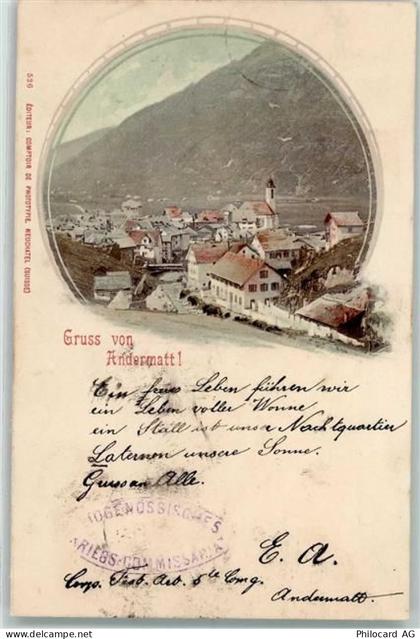 529 ÉDITEUR: COMPTOIR DE PHOTOTYPIE, NEUCHATEL (SUISSE)
Gruss von
Andermatt!
Ein freies Leben führen wir
ein Leben voller Wonne
ein Stall ist unser Nachtquartier
Laternen unsere Sonne.
Gruss an Alle.
IDGENÖSSISCHES
KRIEGS-COMMISSARIAT
E. A.
Corps. Post. Art. 5te Comg.
Andermatt.
www.ansichtskartenversand.com
Copyright Philocard AG